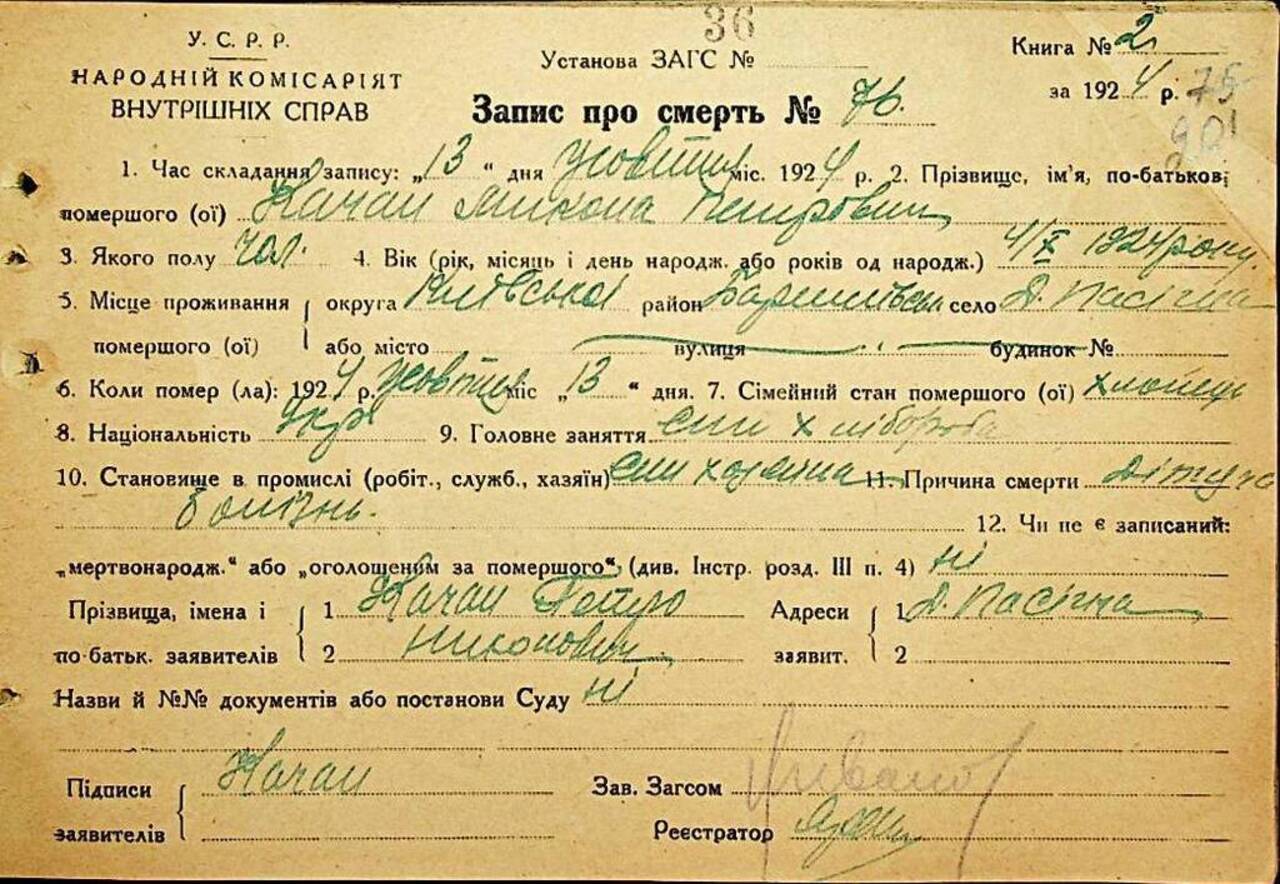 36
У. С. Р. Р.
НАРОДНІЙ КОМІСАРІЯТ
ВНУТРІШНІХ СПРАВ
Установа ЗАГС №
Книга № 2
за 1924 р. 75
201
Запис про смерть № 76.
1. Час складання запису: „13 " дня Жовтня міс. 1924 р. 2. Прізвище, ім'я, по-батькові
помершого (ої) Качан Микола Петрович
3. Якого полу чол. 4. Вік (рік, місяць і день народж. або років од народж.) 4/X 1924 року.
5. Місце проживання округа Київської район Баришівськ село Д. Пасічна
помершого (ої) або місто вулиця будинок №
6. Коли помер (ла): 1924 р. Жовтня міс „13 " дня. 7. Сімейний стан помершого (ої) хлопець
8. Національність Укр 9. Головне заняття син хлібороба
10. Становище в промислі (робіт., служб., хазяїн) син хазяїна 11. Причина смерти Дітяча
болізнь.
12. Чи не є записаний:
„мертвонародж." або „оголошеним за помершого" (див. Інстр. розд. III п. 4) ні
Прізвища, імена і 1 Качан Петро Адреси 1 Д. Пасічна
по батьк. заявителів 2 Никонович заявит. 2
Назви й №№ документів або постанови Суду ні
Підписи Качан Зав. Загсом
заявителів Реєстратор